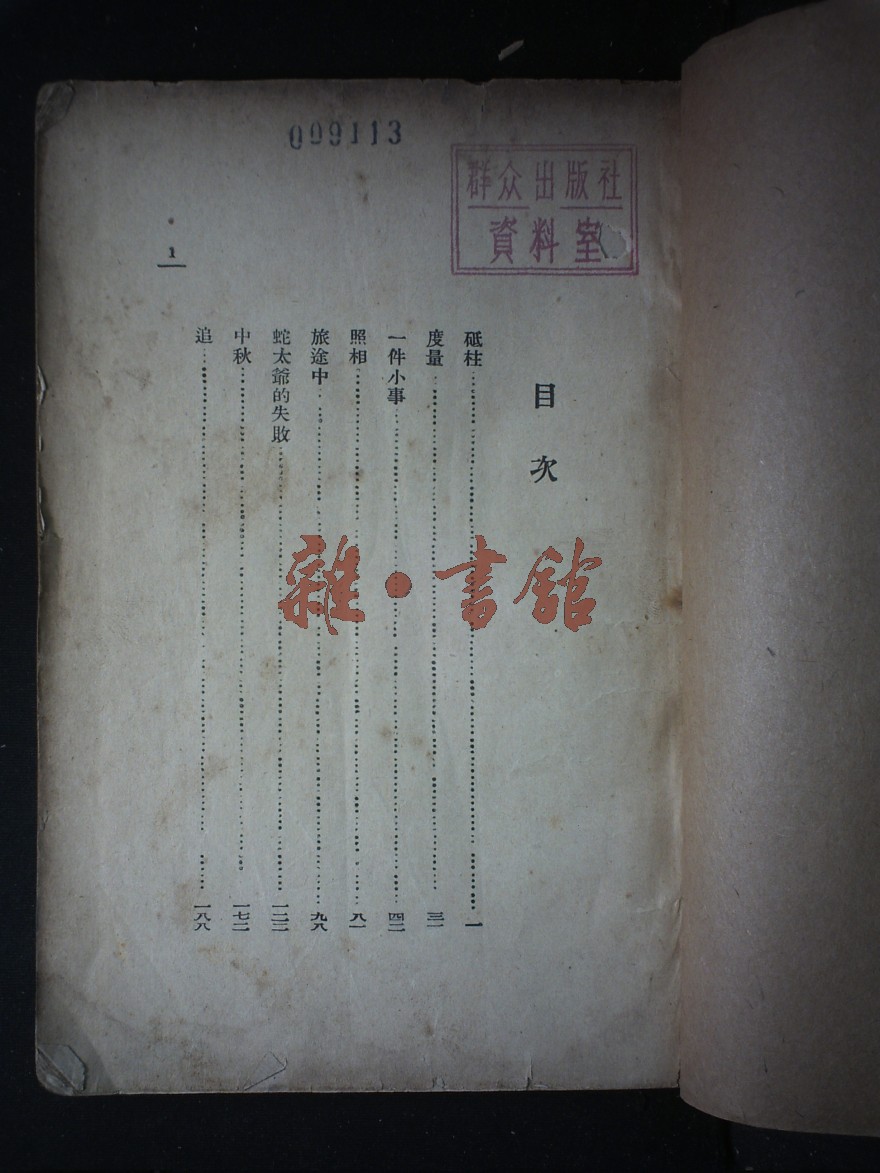 009113
群众出版社
資料室
目次
砥柱……一
度量……三一
一件小事……四二
照相……八一
旅途中……九八
蛇太爺的失敗……一二三
中秋……一七二
追……一八八
1
雜·書館